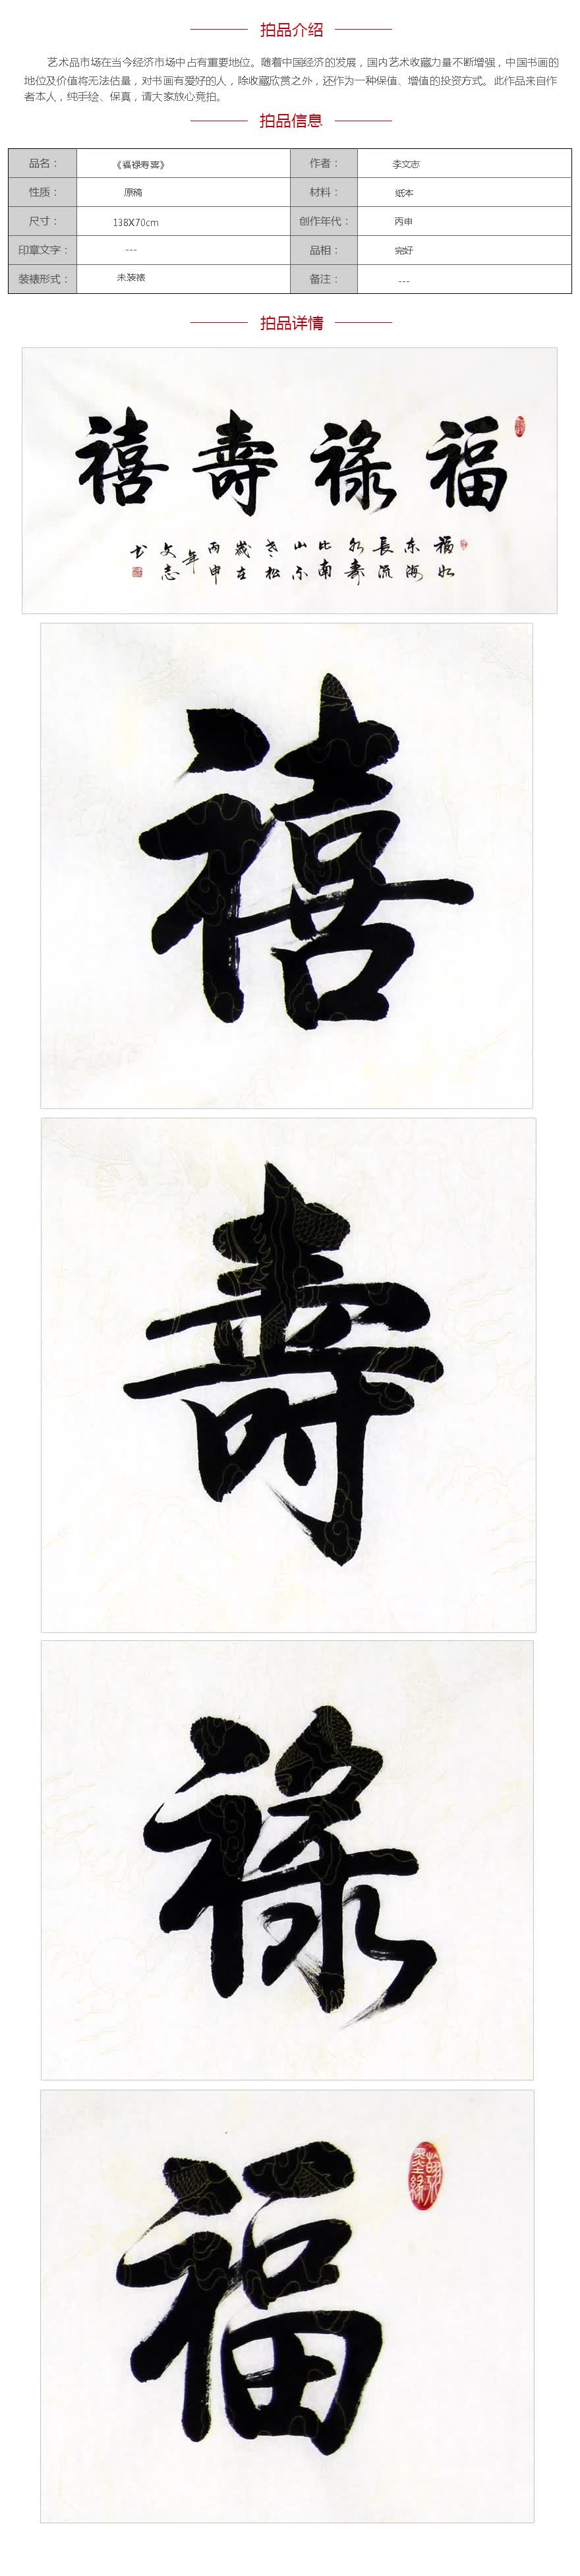 拍品介绍
艺术品市场在当今经济市场中占有重要地位。随着中国经济的发展，国内艺术收藏力量不断增强，中国书画的
地位及价值将无法估量，对书画有爱好的人，除收藏欣赏之外，还作为一种保值、增值的投资方式。此作品来自作
者本人，纯手绘、保真，请大家放心竞拍。
拍品信息
品名： 《福禄寿禧》 作者： 李文志
性质： 原稿 材料： 纸本
尺寸： 138X70cm 创作年代： 丙申
印章文字： --- 品相： 完好
装裱形式： 未装裱 备注： ---
拍品详情
福祿壽禧
福如
东海
長流
水壽
比南
山不
老松
歲在
丙申
年
文志
书
禧
壽
祿
福